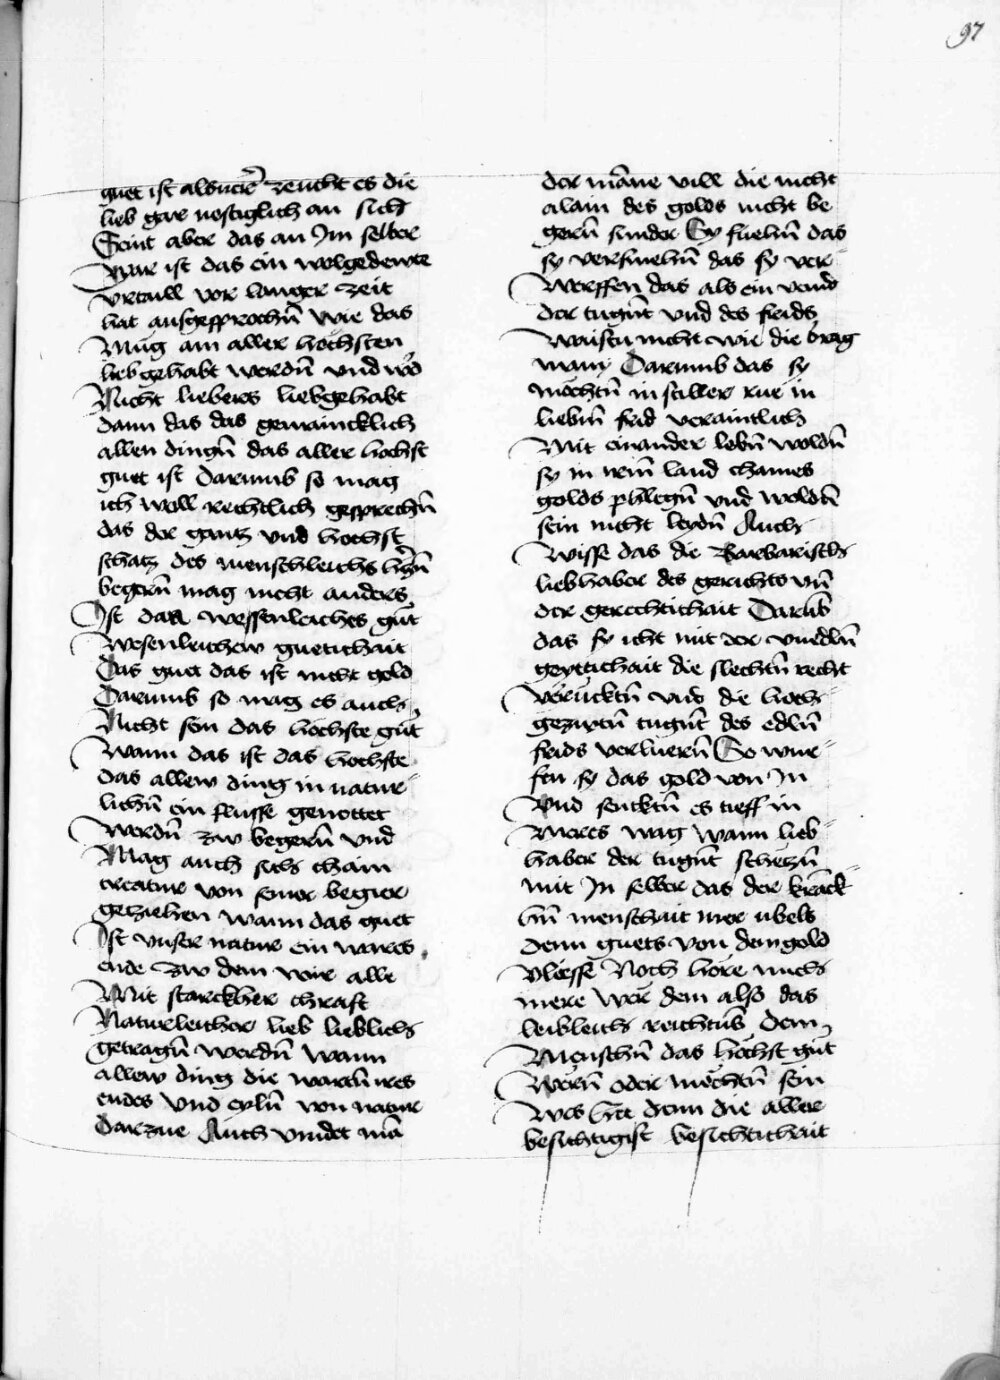 97
guet ist alsuer̃ zeucht es die
lieb gar vestiglich an sich
Seint aber das an Im selber
War ist das ein wolgedewte
vrtaill vor langer zeit
hat ausgesprochñ wie das
Mug am aller hochsten
lieb gehabt werdñ vnd wd̕
Nicht liebers liebgehabt
dann das das gemaincklich
allen dingñ das aller hochst
guet ist darumb so mag
ich woll rechtlich gesprechñ
das der gantz vnd hochst
schatz des menschleichs h̕czñ
begerñ mag nicht anders
Ist dan wessenleiches gut
Wesenleichew guetichait
Das guet das ist nicht gold
Darumb so mag es auch
Nicht sein das hochste gut
Wann das ist das hochste
das allew ding in natur-
lichñ ein flusse genottet
Werdñ zw begerñ vnd
Mag auch sich chain
creatur von seiner begier
geziehen wann das guet
Ist vnser natur ein wares
ende zw dem wir alle
Mit starckher chraft
Naturleicher lieb lieblich
getragñ werdñ Wann
allew ding die wartñ ires
endes vnd eylñ von natur
darzue Auch vindet mã
der mãne vill die nicht
alain des golds nicht be
gerñ sunder Sy fliehñ das
sy versmehñ das sy ver-
Werffen das als ein veind
der tugñt vnd des frids
Waistu nicht wie die brag
many Darumb das sy
mochtñ in stiller rue in
liebm̃ frid veraintlich
Mit einander lebñ woldñ
sy in irm̃ land chaines
golds phlegñ vnd woldñ
sein nicht leydñ Auch
Wisse das die Barbarisch
liebhaber des gerichts vñ
der gerechtichait Darũb
das sy icht mit der vnedlñ
geytichait die slechtñ recht
Verucktñ vnd die hoch-
gezirtñ tugñt des edlñ
frids verluerñ So wur-
fen sy das gold von In
Vnd sencktñ es tieff in
Meres wag Wann lieb-
haber der tugñt scheczñ
mit In selber das der kranck-
hñ menschait mer ubels
denn guets von dem gold
Vliesse Noch hore mich
mere Wer dem also das
leibleich reichtũb dem
Menschñ das hochst gut
Werñ oder mochtñ sein
Wes hiet denn die aller
besichtigist besichtichait